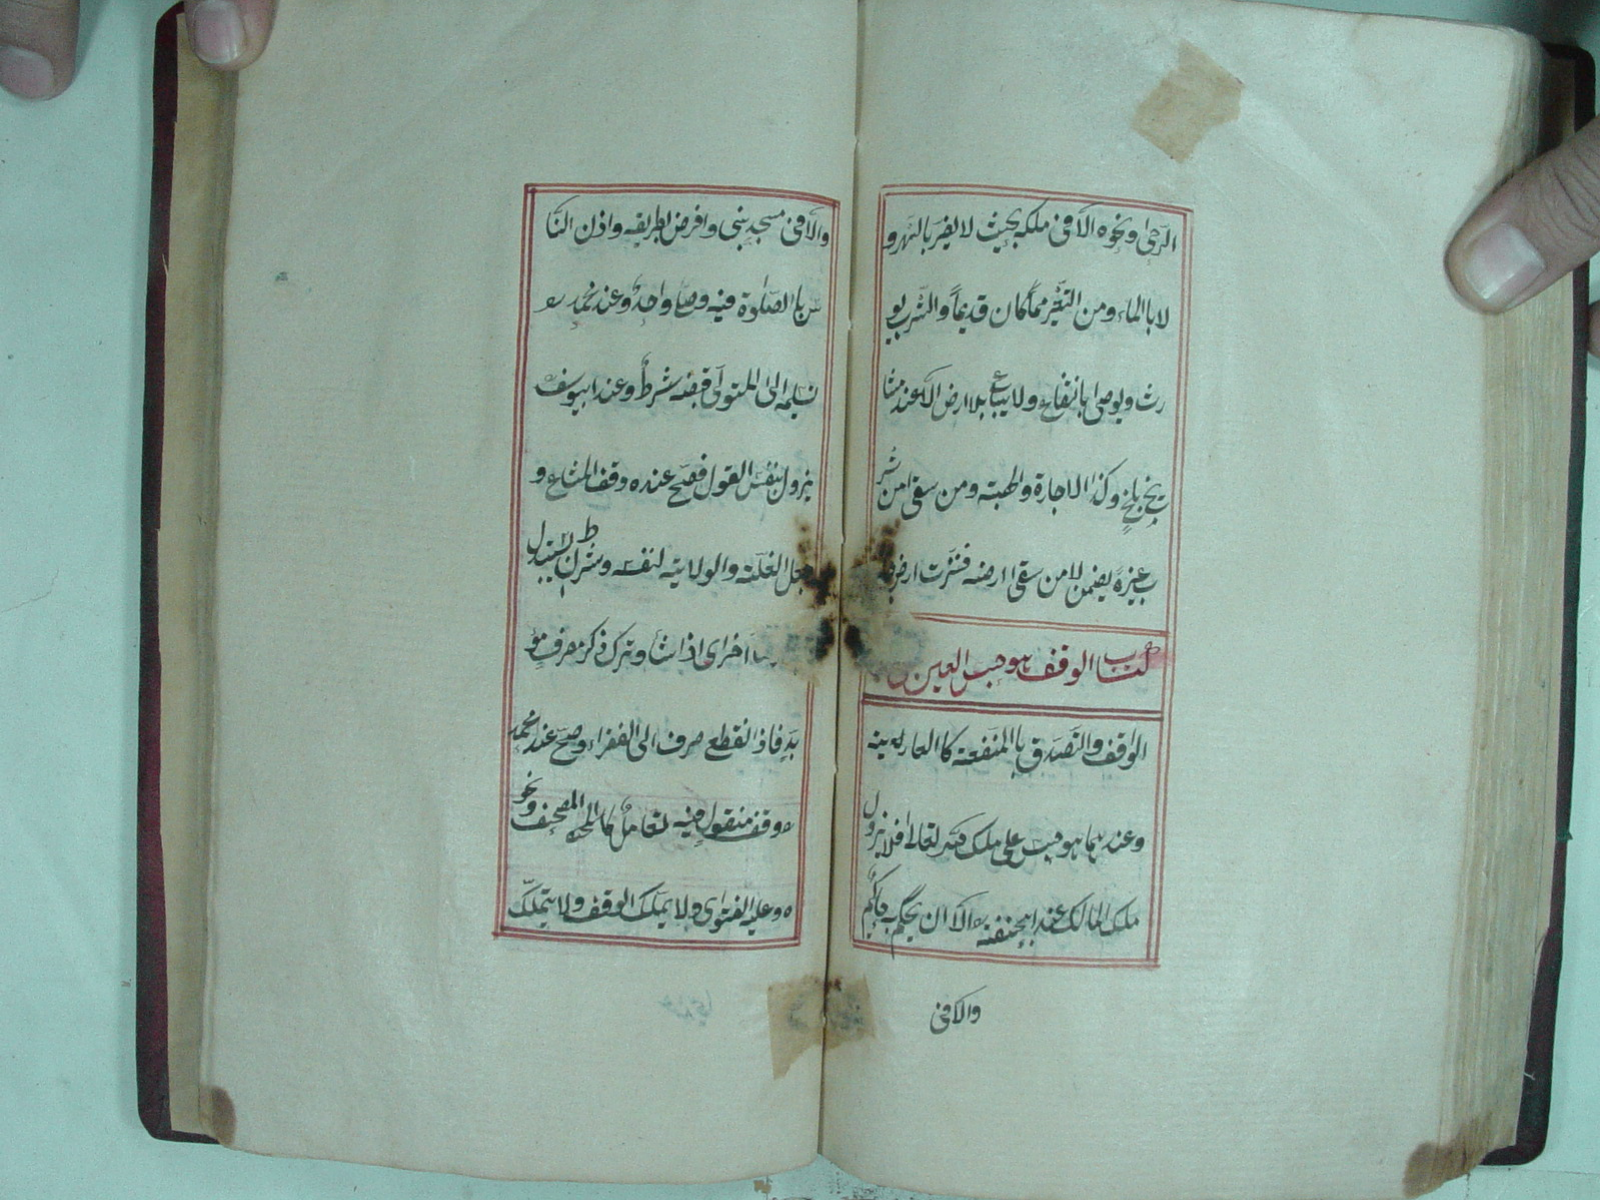 الرحى ونحوه الا فى ملكه بحيث لا يضر بالنهر و
لا بالماء ومن التغير مما كان قديماً والشرب يو
رث ويوصى بانتفاعه ولا يباع بلا ارض الا عند مشا
يخ بلخ وكذا الاجارة والهبة ومن سقى من شر
ب غيره يضمن لا من سقى ارضه فنزت ارض
كتاب الوقف هو حبس العين
الواقف والتصدق بالمنفعة كا العارية
وعندهما هو حبس على ملك الله تعالى فلا يزول
ملك المالك عند ابيحنفة الا ان يحكم به حاكم
والا فى
والا فى مسجد بنى وافرض بطريقه واذن النا
س با الصلوة فيه وصلى واحد وعند محمد
تسليمه الى المتولى قبضه شرط وعند ابيوسف
يزول بنفس القول فصح عنده وقف المشاع و
جعل الغلة والولاية لنفسه وشرط ان يستبدل
اخرى اذا شاء وترك ذكر مصرف مؤ
بد فاذا انقطع صرف الى الفقراء وصح عند محمد
وقف منقول فيه تعامل كا المصحف ونحو
ه وعليه الفتوى ولا يملك الوقف ولا يتملك